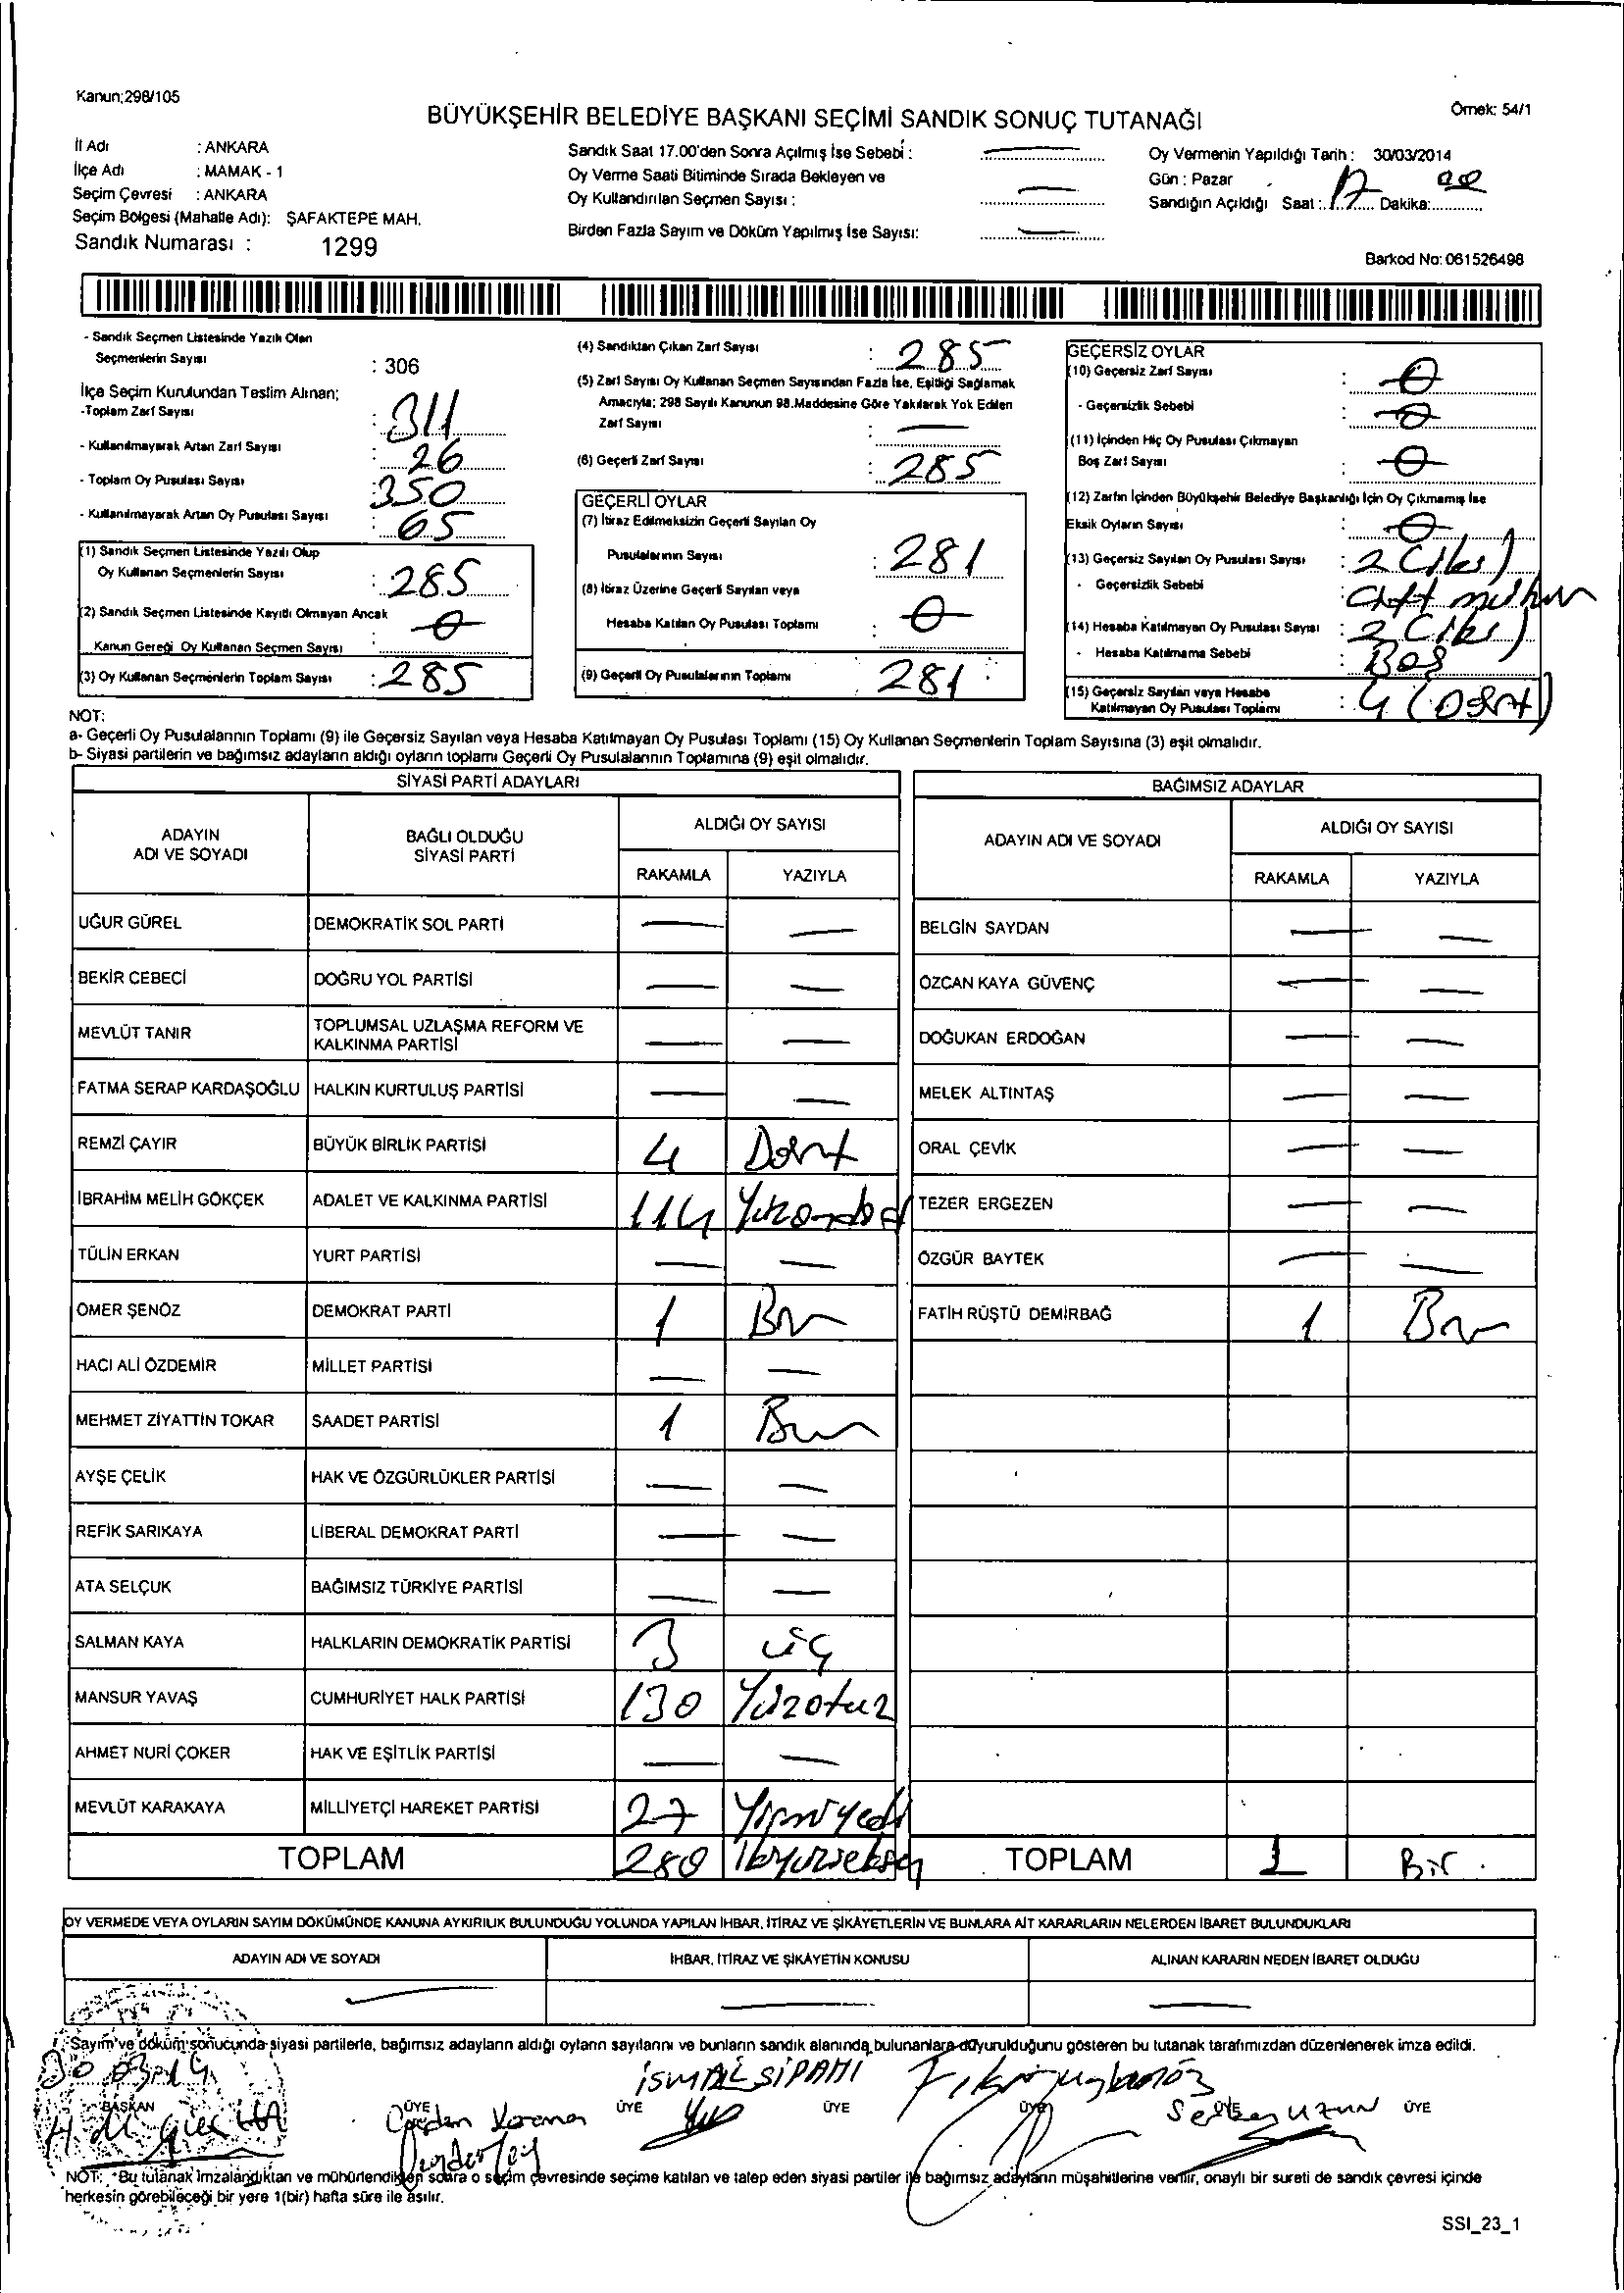 Kanun;298/105
Örnek: 54/1
BÜYÜKŞEHİR BELEDİYE BAŞKANI SEÇİMİ SANDIK SONUÇ TUTANAĞI
İl Adı : ANKARA
İlçe Adı : MAMAK - 1
Seçim Çevresi : ANKARA
Seçim Bölgesi (Mahalle Adı): ŞAFAKTEPE MAH.
Sandık Numarası : 1299
Sandık Saat 17.00'den Sonra Açılmış İse Sebebi :
Oy Verme Saati Bitiminde Sırada Bekleyen ve
Oy Kullandırılan Seçmen Sayısı :
Birden Fazla Sayım ve Döküm Yapılmış İse Sayısı:
Oy Vermenin Yapıldığı Tarih : 30/03/2014
Gün : Pazar
Sandığın Açıldığı Saat : 17 Dakika:
Barkod No: 061526498
- Sandık Seçmen Listesinde Yazılı Olan
Seçmenlerin Sayısı : 306
İlçe Seçim Kurulundan Teslim Alınan;
-Toplam Zarf Sayısı : 311
- Kullanılmayarak Artan Zarf Sayısı : 26
- Toplam Oy Pusulası Sayısı : 350
- Kullanılmayarak Artan Oy Pusulası Sayısı : 65
(1) Sandık Seçmen Listesinde Yazılı Olup
Oy Kullanan Seçmenlerin Sayısı : 285
(2) Sandık Seçmen Listesinde Kayıtlı Olmayan Ancak
Kanun Gereği Oy Kullanan Seçmen Sayısı : 0
(3) Oy Kullanan Seçmenlerin Toplam Sayısı : 285
(4) Sandıktan Çıkan Zarf Sayısı : 285
(5) Zarf Sayısı Oy Kullanan Seçmen Sayısından Fazla İse, Eşitliği Sağlamak
Amacıyla; 298 Sayılı Kanunun 98.Maddesine Göre Yakılarak Yok Edilen
Zarf Sayısı :
(6) Geçerli Zarf Sayısı : 285
GEÇERLİ OYLAR
(7) İtiraz Edilmeksizin Geçerli Sayılan Oy
Pusulalarının Sayısı : 281
(8) İtiraz Üzerine Geçerli Sayılan veya
Hesaba Katılan Oy Pusulası Toplamı : 0
(9) Geçerli Oy Pusulalarının Toplamı 281
GEÇERSİZ OYLAR
(10) Geçersiz Zarf Sayısı : 0
- Geçersizlik Sebebi : 0
(11) İçinden Hiç Oy Pusulası Çıkmayan
Boş Zarf Sayısı : 0
(12) Zarfın İçinden Büyükşehir Belediye Başkanlığı İçin Oy Çıkmamış İse
Eksik Oyların Sayısı : 0
(13) Geçersiz Sayılan Oy Pusulası Sayısı : 2 (iki)
- Geçersizlik Sebebi : Çift mühür
(14) Hesaba Katılmayan Oy Pusulası Sayısı : 2 (iki)
- Hesaba Katılmama Sebebi : Boş
(15) Geçersiz Sayılan veya Hesaba
Katılmayan Oy Pusulası Toplamı : 4 (Dört)
NOT:
a- Geçerli Oy Pusulalarının Toplamı (9) ile Geçersiz Sayılan veya Hesaba Katılmayan Oy Pusulası Toplamı (15) Oy Kullanan Seçmenlerin Toplam Sayısına (3) eşit olmalıdır.
b- Siyasi partilerin ve bağımsız adayların aldığı oyların toplamı Geçerli Oy Pusulalarının Toplamına (9) eşit olmalıdır.
SİYASİ PARTİ ADAYLARI
ADAYIN ADI VE SOYADI BAĞLI OLDUĞU SİYASİ PARTİ ALDIĞI OY SAYISI
RAKAMLA YAZIYLA
UĞUR GÜREL DEMOKRATİK SOL PARTİ
BEKİR CEBECİ DOĞRU YOL PARTİSİ
MEVLÜT TANIR TOPLUMSAL UZLAŞMA REFORM VE KALKINMA PARTİSİ
FATMA SERAP KARDAŞOĞLU HALKIN KURTULUŞ PARTİSİ
REMZİ ÇAYIR BÜYÜK BİRLİK PARTİSİ 4 Dört
İBRAHİM MELİH GÖKÇEK ADALET VE KALKINMA PARTİSİ 114 Yüzondört
TÜLİN ERKAN YURT PARTİSİ
ÖMER ŞENÖZ DEMOKRAT PARTİ 1 Bir
HACI ALİ ÖZDEMİR MİLLET PARTİSİ
MEHMET ZİYATTİN TOKAR SAADET PARTİSİ 1 Bir
AYŞE ÇELİK HAK VE ÖZGÜRLÜKLER PARTİSİ
REFİK SARIKAYA LİBERAL DEMOKRAT PARTİ
ATA SELÇUK BAĞIMSIZ TÜRKİYE PARTİSİ
SALMAN KAYA HALKLARIN DEMOKRATİK PARTİSİ 3 üç
MANSUR YAVAŞ CUMHURİYET HALK PARTİSİ 130 Yüzotuz
AHMET NURİ ÇOKER HAK VE EŞİTLİK PARTİSİ
MEVLÜT KARAKAYA MİLLİYETÇİ HAREKET PARTİSİ 27 Yirmiyedi
TOPLAM 280 İkiyüzseksen
BAĞIMSIZ ADAYLAR
ADAYIN ADI VE SOYADI ALDIĞI OY SAYISI
RAKAMLA YAZIYLA
BELGİN SAYDAN
ÖZCAN KAYA GÜVENÇ
DOĞUKAN ERDOĞAN
MELEK ALTINTAŞ
ORAL ÇEVİK
TEZER ERGEZEN
ÖZGÜR BAYTEK
FATİH RÜŞTÜ DEMİRBAĞ 1 Bir
TOPLAM 1 Bir
OY VERMEDE VEYA OYLARIN SAYIM DÖKÜMÜNDE KANUNA AYKIRILIK BULUNDUĞU YOLUNDA YAPILAN İHBAR, İTİRAZ VE ŞİKÂYETLERİN VE BUNLARA AİT KARARLARIN NELERDEN İBARET BULUNDUKLARI
ADAYIN ADI VE SOYADI İHBAR, İTİRAZ VE ŞİKÂYETİN KONUSU ALINAN KARARIN NEDEN İBARET OLDUĞU
Sayım ve döküm sonucunda siyasi partilerle, bağımsız adayların aldığı oyların sayılarını ve bunların sandık alanında bulunanlara duyurulduğunu gösteren bu tutanak tarafımızdan düzenlenerek imza edildi.
İSMAİL SİPAHİ
BAŞKAN ÜYE ÜYE ÜYE ÜYE ÜYE ÜYE
NOT: *Bu tutanak imzalandıktan ve mühürlendikten sonra o seçim çevresinde seçime katılan ve talep eden siyasi partiler ile bağımsız adayların müşahitlerine verilir, onaylı bir sureti de sandık çevresi içinde
herkesin görebileceği bir yere 1(bir) hafta süre ile asılır.
SSI_23_1